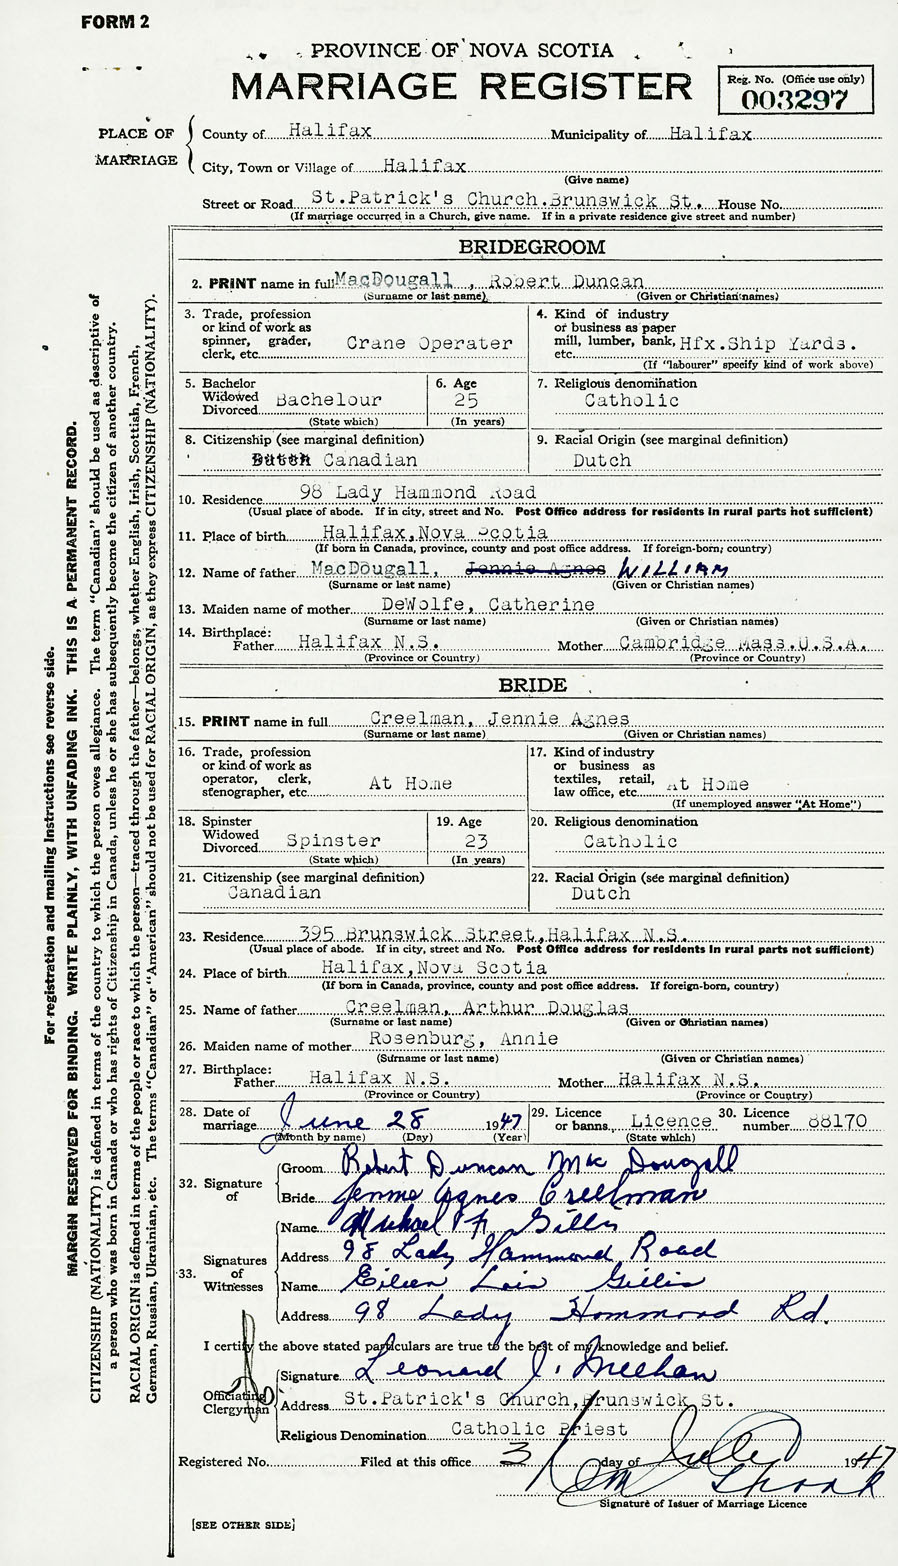 FORM 2
PROVINCE OF NOVA SCOTIA
MARRIAGE REGISTER
Reg. No. (Office use only)
003297
PLACE OF MARRIAGE
County of Halifax Municipality of Halifax
City, Town or Village of Halifax
(Give name)
Street or Road St.Patrick's Church.Brunswick St. House No.
(If marriage occurred in a Church, give name. If in a private residence give street and number)
BRIDEGROOM
2. PRINT name in full MacDougall , Robert Duncan
(Surname or last name) (Given or Christian names)
3. Trade, profession
or kind of work as
spinner, grader,
clerk, etc. Crane Operater
4. Kind of industry
or business as paper
mill, lumber, bank,
etc. Hfx.Ship Yards.
(If "labourer" specify kind of work above)
5. Bachelor
Widowed
Divorced Bachelour
(State which)
6. Age
25
(In years)
7. Religious denomination
Catholic
8. Citizenship (see marginal definition)
Dutch Canadian
9. Racial Origin (see marginal definition)
Dutch
10. Residence 98 Lady Hammond Road
(Usual place of abode. If in city, street and No. Post Office address for residents in rural parts not sufficient)
11. Place of birth Halifax,Nova Scotia
(If born in Canada, province, county and post office address. If foreign-born, country)
12. Name of father MacDougall, Jennie Agnes WILLIAM
(Surname or last name) (Given or Christian names)
13. Maiden name of mother DeWolfe, Catherine
(Surname or last name) (Given or Christian names)
14. Birthplace:
Father Halifax N.S. Mother Cambridge Mass.U.S.A.
(Province or Country) (Province or Country)
BRIDE
15. PRINT name in full Creelman, Jennie Agnes
(Surname or last name) (Given or Christian names)
16. Trade, profession
or kind of work as
operator, clerk,
stenographer, etc. At Home
17. Kind of industry
or business as
textiles, retail,
law office, etc. At Home
(If unemployed answer "At Home")
18. Spinster
Widowed
Divorced Spinster
(State which)
19. Age
23
(In years)
20. Religious denomination
Catholic
21. Citizenship (see marginal definition)
Canadian
22. Racial Origin (see marginal definition)
Dutch
23. Residence 395 Brunswick Street,Halifax N.S.
(Usual place of abode. If in city, street and No. Post Office address for residents in rural parts not sufficient)
24. Place of birth Halifax,Nova Scotia
(If born in Canada, province, county and post office address. If foreign-born, country)
25. Name of father Creelman, Arthur Douglas
(Surname or last name) (Given or Christian names)
26. Maiden name of mother Rosenburg, Annie
(Surname or last name) (Given or Christian names)
27. Birthplace:
Father Halifax N.S. Mother Halifax N.S.
(Province or Country) (Province or Country)
28. Date of
marriage June 28 1947
(Month by name) (Day) (Year)
29. Licence
or banns Licence
(State which)
30. Licence
number 88170
32. Signature
of
Groom Robert Duncan Mac Dougall
Bride Jennie Agnes Creelman
33. Signatures
of
Witnesses
Name Michael F. Gillis
Address 98 Lady Hammond Road
Name Eileen Lois Gillis
Address 98 Lady Hommond Rd.
I certify the above stated particulars are true to the best of my knowledge and belief.
Officiating
Clergyman
Signature Leonard J. Meehan
Address St.Patrick's Church,Brunswick St.
Religious Denomination Catholic Priest
Registered No. Filed at this office 3 day of July 1947
Signature of Issuer of Marriage Licence
[SEE OTHER SIDE]
For registration and mailing instructions see reverse side.
MARGIN RESERVED FOR BINDING. WRITE PLAINLY, WITH UNFADING INK. THIS IS A PERMANENT RECORD.
CITIZENSHIP (NATIONALITY) is defined in terms of the country to which the person owes allegiance. The term "Canadian" should be used as descriptive of
a person who was born in Canada or who has rights of Citizenship in Canada, unless he or she has subsequently become the citizen of another country.
RACIAL ORIGIN is defined in terms of the people or race to which the person—traced through the father—belongs, whether English, Irish, Scottish, French,
German, Russian, Ukrainian, etc. The terms "Canadian" or "American" should not be used for RACIAL ORIGIN, as they express CITIZENSHIP (NATIONALITY).